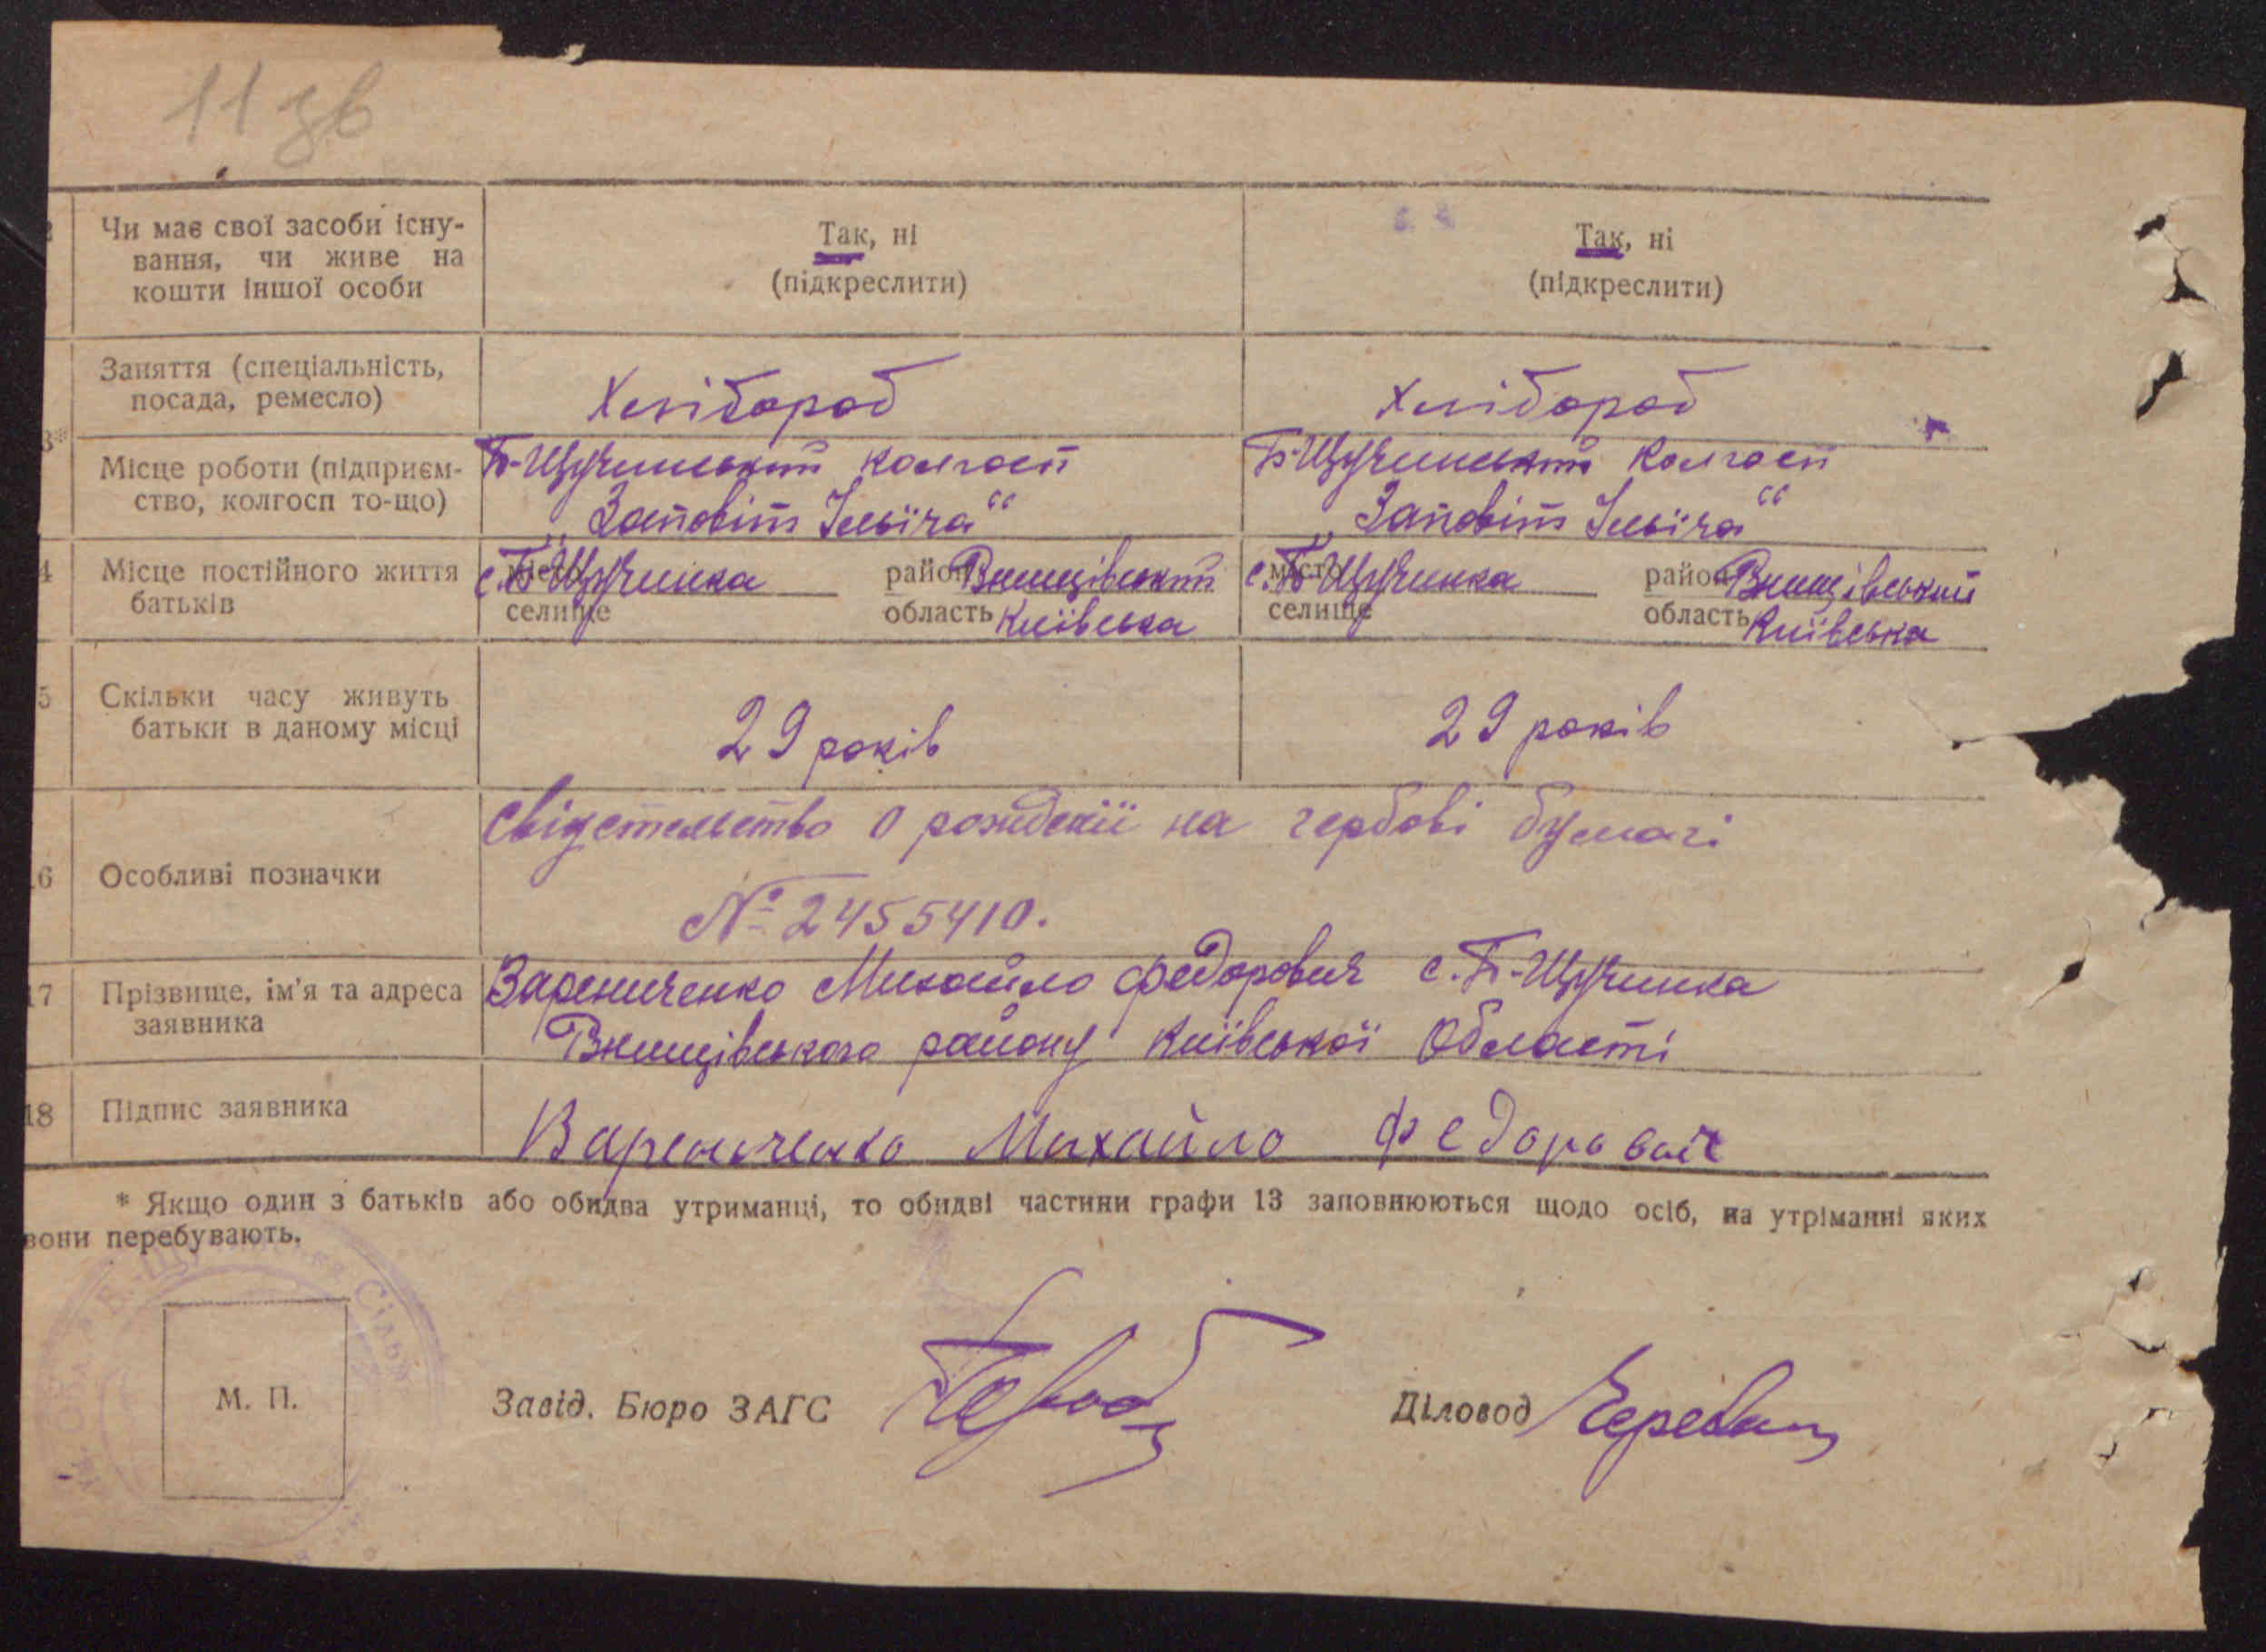 11 зв
Чи має свої засоби існу-
вання, чи живе на
кошти іншої особи
Так, ні
(підкреслити)
Так, ні
(підкреслити)
3*
Заняття (спеціальність,
посада, ремесло)
Хлібороб
Хлібороб
Місце роботи (підприєм-
ство, колгосп то-що)
Б-Щучинський колгосп
„Заповіт Ілліча“
Б-Щучинський колгосп
„Заповіт Ілліча“
4 Місце постійного життя
батьків
місто
селище
с. Б-Щучинка
район Ржищівський
область Київська
місто
селище
с. Б-Щучинка
район Ржищівський
область Київська
5 Скільки часу живуть
батьки в даному місці
29 років
29 років
6 Особливі позначки
свідетельство о рождению на гербові бумагі
№ 2455410.
17 Прізвище, ім'я та адреса
заявника
Варениченко Михайло Федорович с. Б-Щучинка
Ржищівського району Київської Області
18 Підпис заявника
Варениченко Михайло Федорович
* Якщо один з батьків або обидва утриманці, то обидві частини графи 13 заповнюються щодо осіб, на утріманні яких
вони перебувають.
М. П.
Завід. Бюро ЗАГС
Діловод